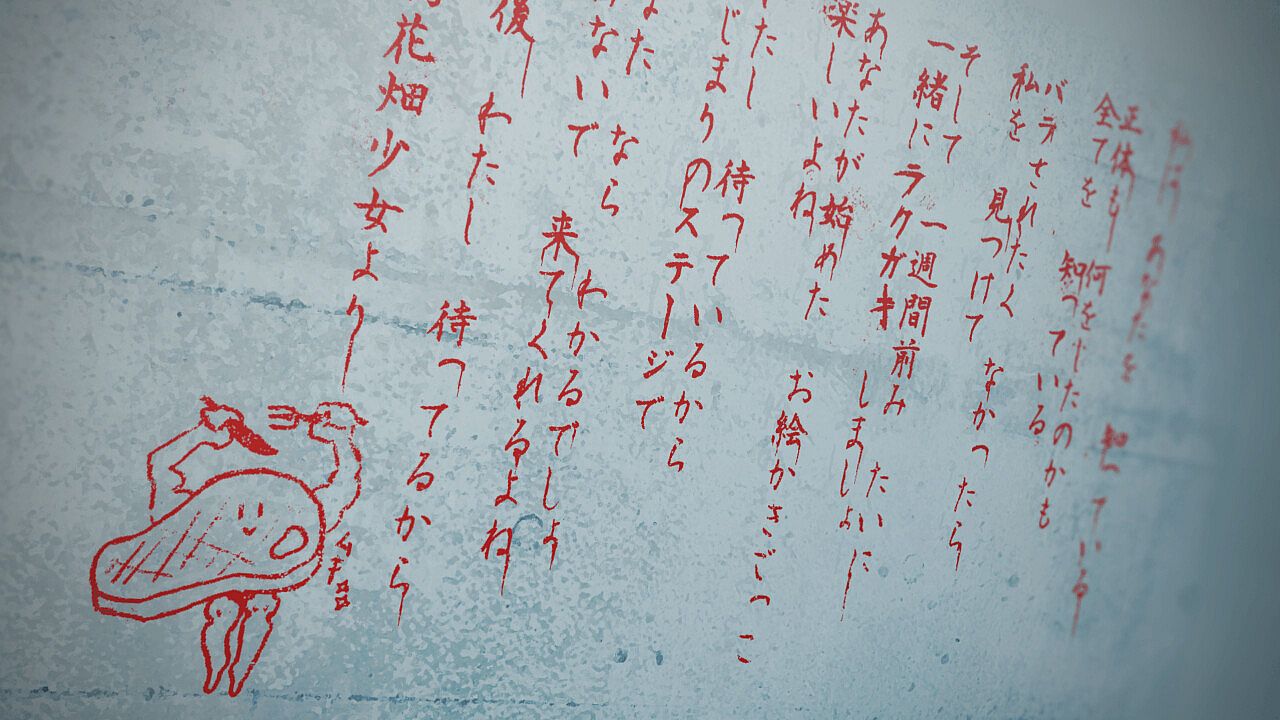 私は あなたを 知っている
正体も 何をしたのかも
全てを 知っている
バラされたく なかったら
私を 見つけて
そして 一週間前みたいに
一緒に ラクガキ しましょ
あなたが始めた お絵かきごっこ
楽しいよね
たし 待っているから
じまりのステージで
なた なら わかるでしょ
ないで 来てくれるよね
わたし 待ってるから
花畑少女より